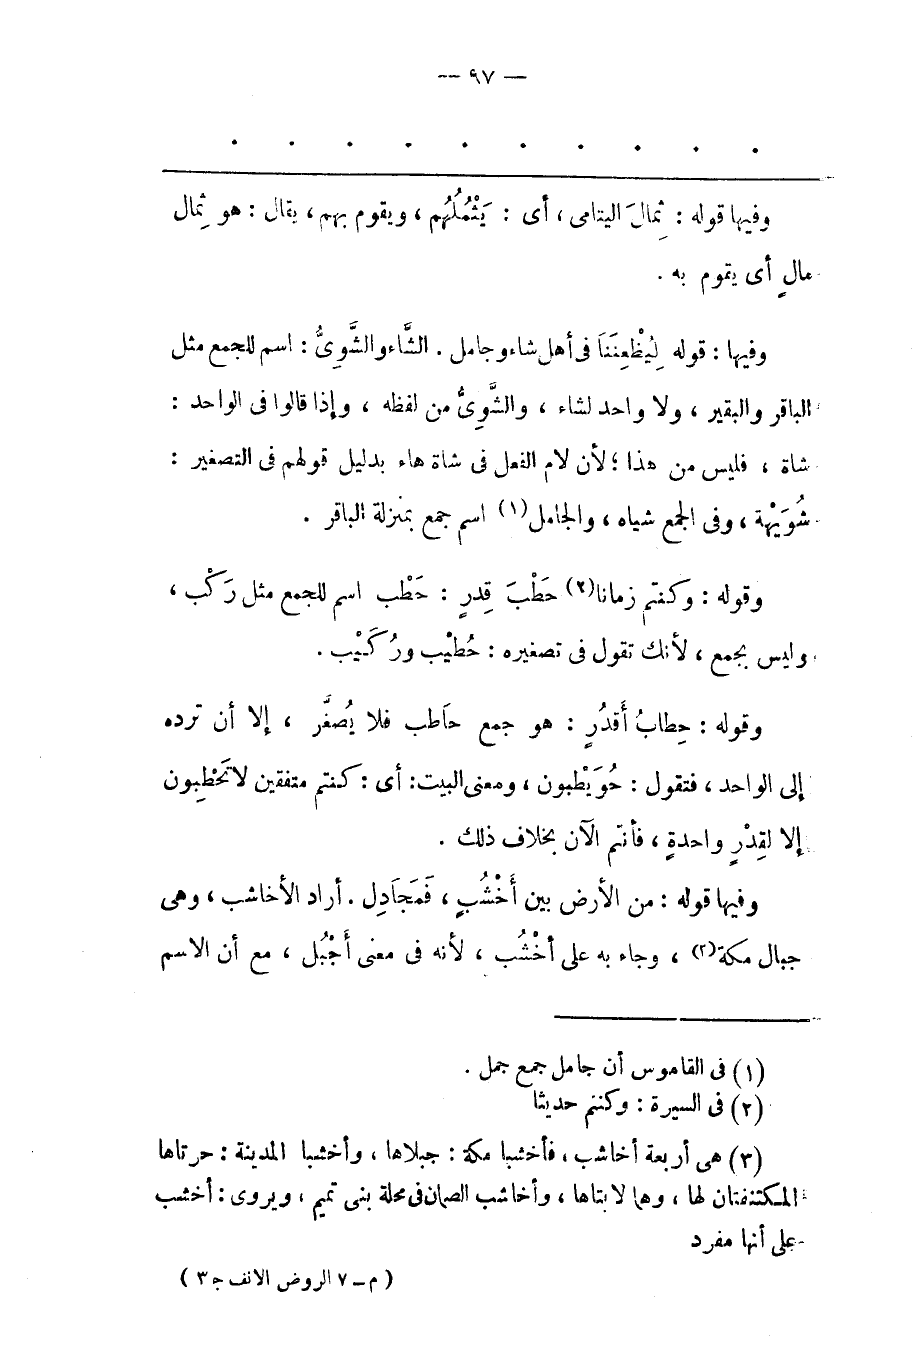 — ٩٧ —
. . . . . . . . . .
وفيها قوله : ثِمالَ اليتامى ، أى : يَثْمُلُهُم ، ويقوم بهم ، يقال : هو ثِمال
مالٍ أى يقوم به .
وفيها : قوله لِيُظْعِنَنَا فى أهل شاء وجامل . الشَّاء والشَّوِىُّ : اسم للجمع مثل
الباقر والبقير ، ولا واحد لشاء ، والشَّوِىُّ من لفظه ، وإذا قالوا فى الواحد :
شاة ، فليس من هذا ؛ لأن لام الفعل فى شاة هاء بدليل قولهم فى التصغير :
شُوَيْهة ، وفى الجمع شياه ، والجامل(١) اسم جمع بمنزلة الباقر .
وقوله : وكنتم زمانا(٢) حَطْبَ قِدرٍ : حَطْب اسم للجمع مثل رَكْب ،
وليس بجمع ، لأنك تقول فى تصغيره : حُطَيْب ورُكَيْب .
وقوله : حِطابُ أَقدُرٍ : هو جمع حاَطب فلا يُصغَّر ، إلا أن ترده
إلى الواحد ، فتقول : حُوَيْطبون ، ومعنى البيت : أى : كنتم متفقين لا تَحْطِبون
إلا لقِدْرٍ واحدةٍ ، فأنتم الآن بخلاف ذلك .
وفيها قوله : من الأرض بين أَخْشُبٍ ، فَمَجَادِل . أراد الأخاشب ، وهى
جبال مكة(٣) ، وجاء به على أخْشُب ، لأنه فى معنى أَجْبُل ، مع أن الاسم
(١) فى القاموس أن جامل جمع جمل .
(٢) فى السيرة : وكنتم حديثا
(٣) هى أربعة أخاشب ، فأخشبا مكة : جبلاها ، وأخشبا المدينة : حرتاها
المكتنفتان لها ، وهما لابتاها ، وأخاشب الصمان فى محلة بنى تميم ، ويروى : أخشب
على أنها مفرد
( م – ٧ الروض الانف ج ٣ )